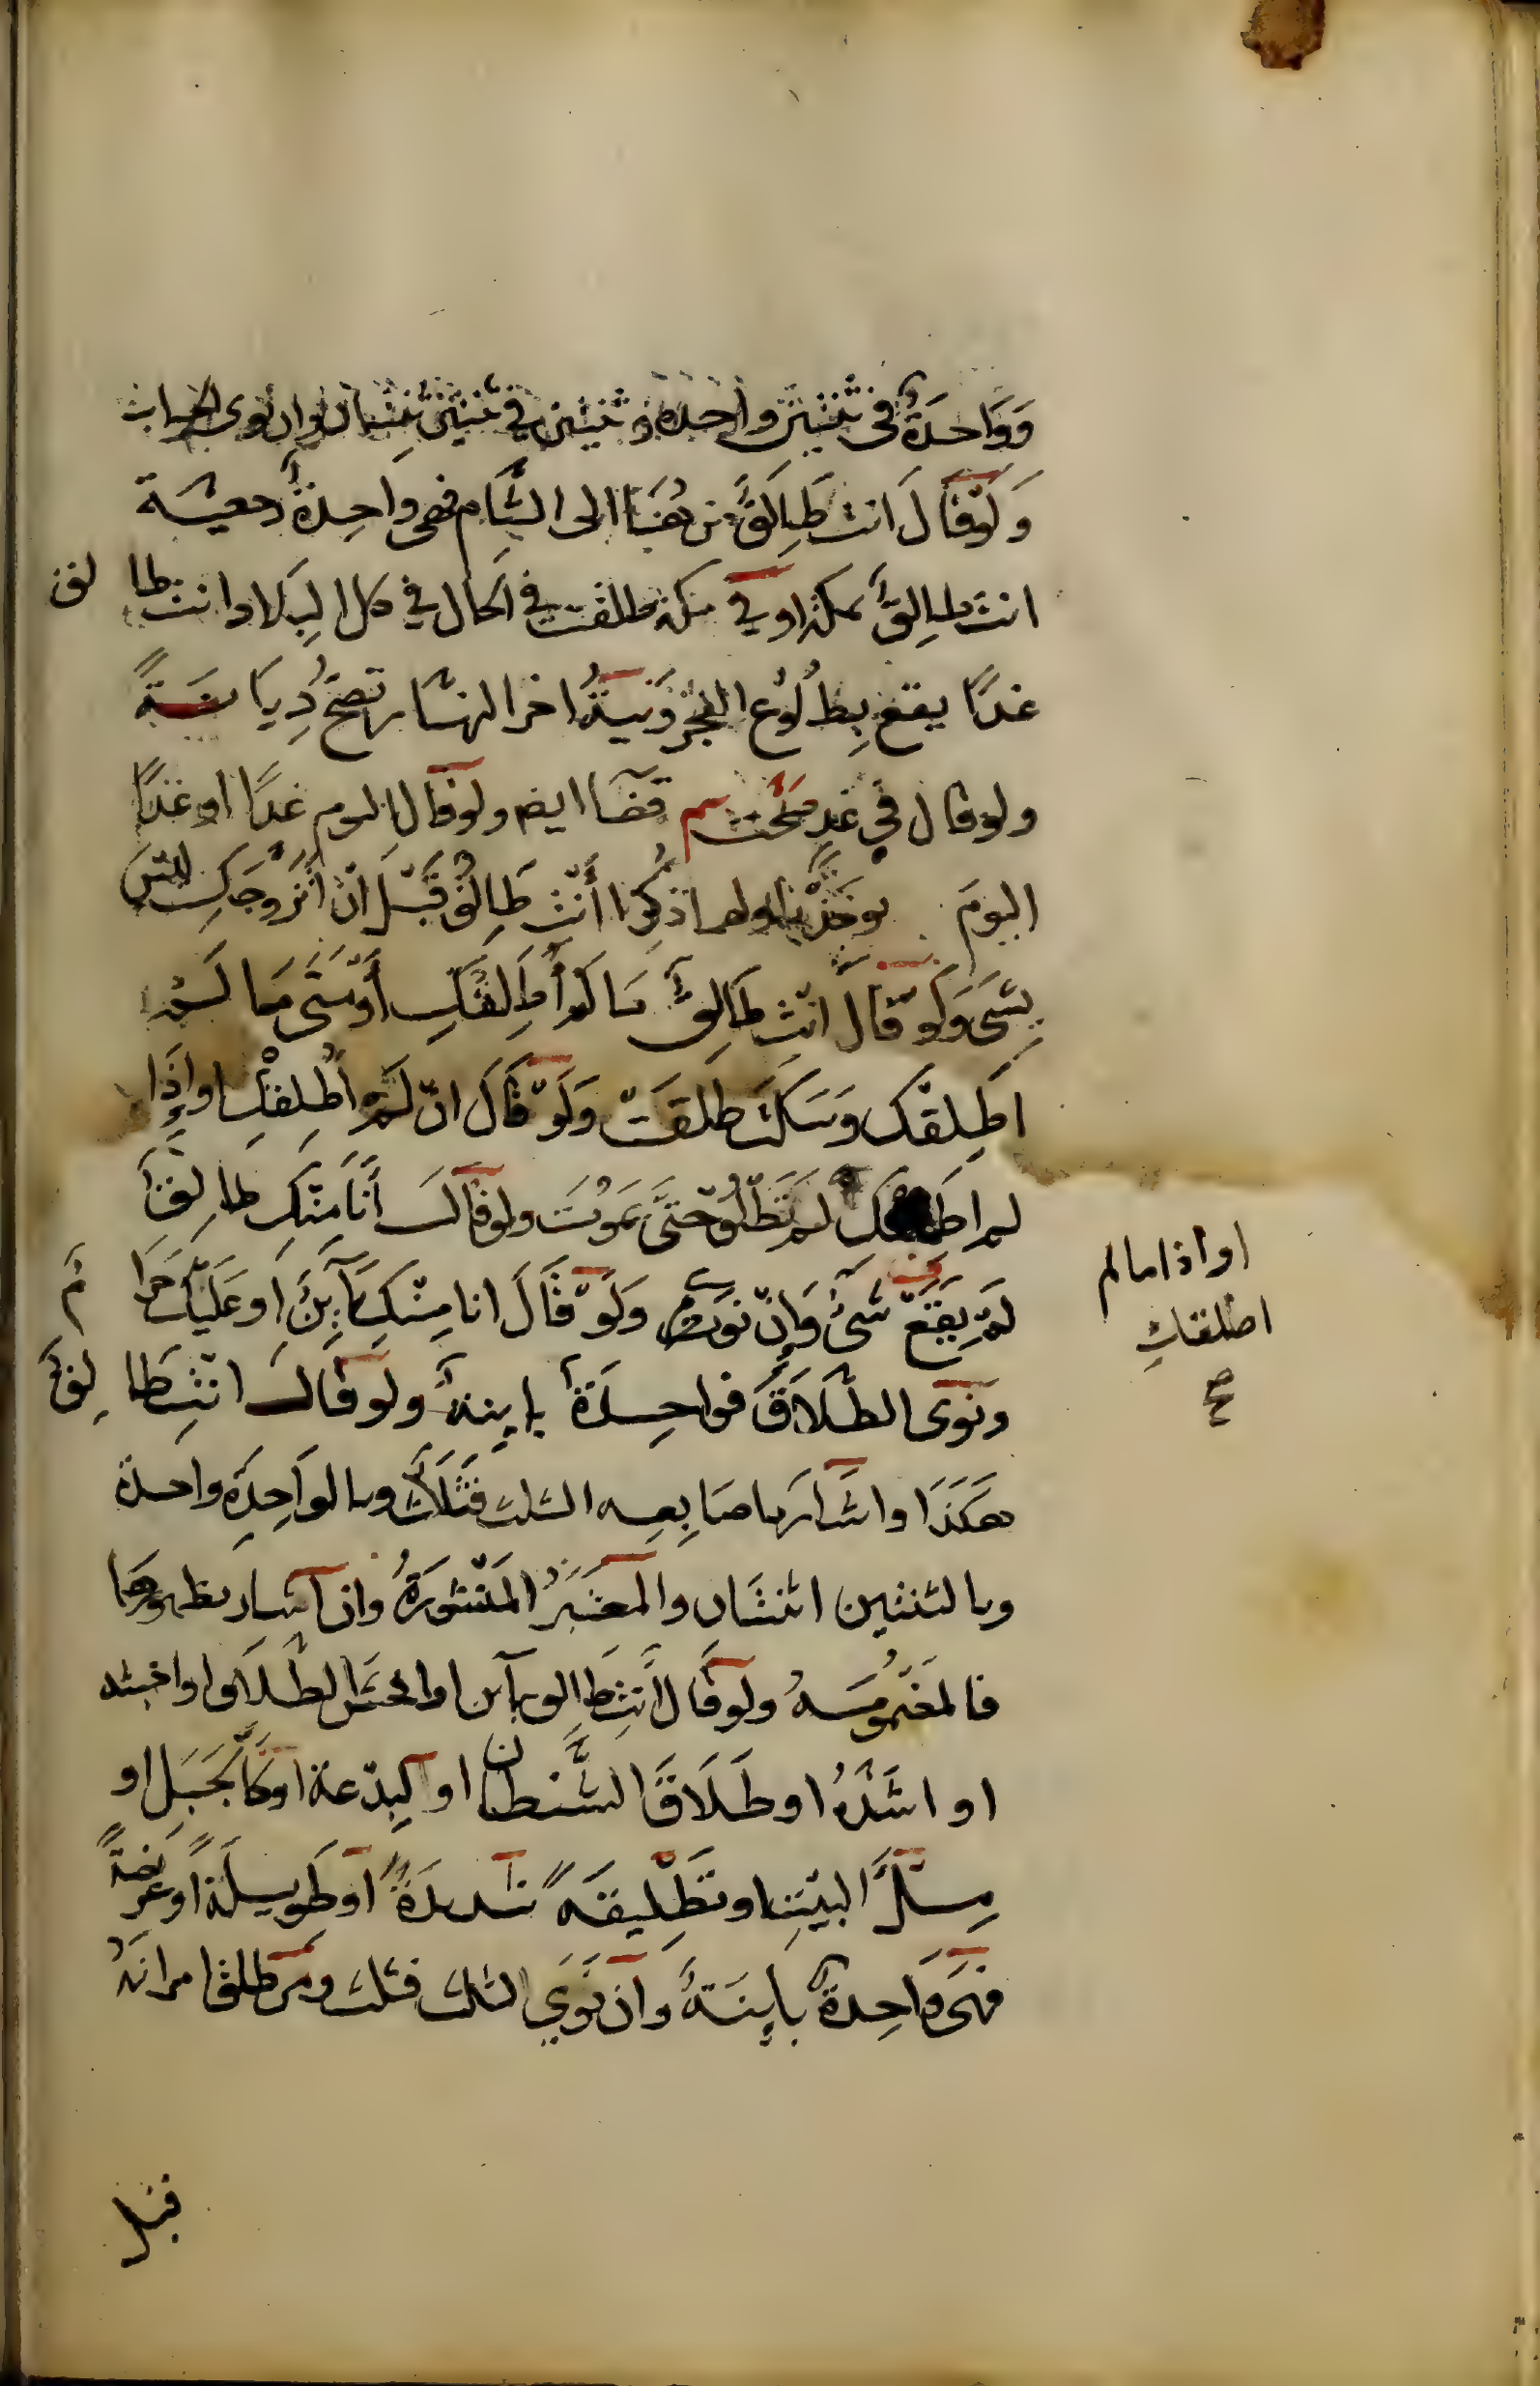 وَوَاحدَةٌ في ثنتين واحده و ثنتين في ثنتين ثنتان وان نوى الحساب
وَلَوْ قالَ انت طَالِقٌ من هُنَا الى الشَّام فهى واحِدةٌ رجعيَّة
انت طالِقٌ بمكة او في مكة طلقت في الحال في كل البِلاد وانت طالق
غدًا يقع بِطلُوع الفجر ونيَّةُ اخر النهار تصحُّ دِيَانَةً
ولو قال في غدٍ صحَّت سم قضَاً ايض ولو قال اليوم غدًا او غدًا
اليومَ يوخَذُ باولهما ذكرا أنتِ طالِقٌ قَبْلَ انْ اتزوجَكِ ليسَ
بِشَىَ وَلَوْ قالَ انتِ طَالِقٌ ما لم أطلِقكِ أوْ متَى مَا لم
اطلِقكِ وَسَكتَ طلقَتْ وَلَوْ قَالَ انْ لَمْ اُطلِقْكِ او اِذَا
لم اطلقكِ لم تطلُق حتَّى يموْتَ ولو قالَ أنَا مِنكِ طالِقٌ
لَمْ يقَعْ شىٌ وَاِنْ نوى ولَوْ قَالَ انا مِنْكِ بَآئِنٌ او عَلَيْكِ حَرَامٌ
ونوَى الطلَاقَ فواحِدَةٌ باينةٌ ولو قالَ انتِ طالِقٌ
هكَذَا واشَارَ باصَابِعِه الثلث فثَلَاثٌ وبالواحِدِة واحدة
وبالثنتين اثنتَان والمعتبَرُ المَنْشورَةُ وان اشار بظهورهَا
فالمضمُومَة ولو قَال انتِ طَالِق بآئن او افحش الطلَاق او اخبثه
او اشَدَّهُ او طَلَاقَ الشَّيطان او البِدْعة او كالجَبَلِ او
مِلأَ البيْتِ او تطْلِيقَةً شديدَةً او طَوِيلَةً او عَريضةً
فهىَ وَاحِدةٌ باينَةٌ وَان نَوَي الثلث فثلث ومن طلق امراتَهُ
او اذا ما لم
اطلقكِ
صح
قبل